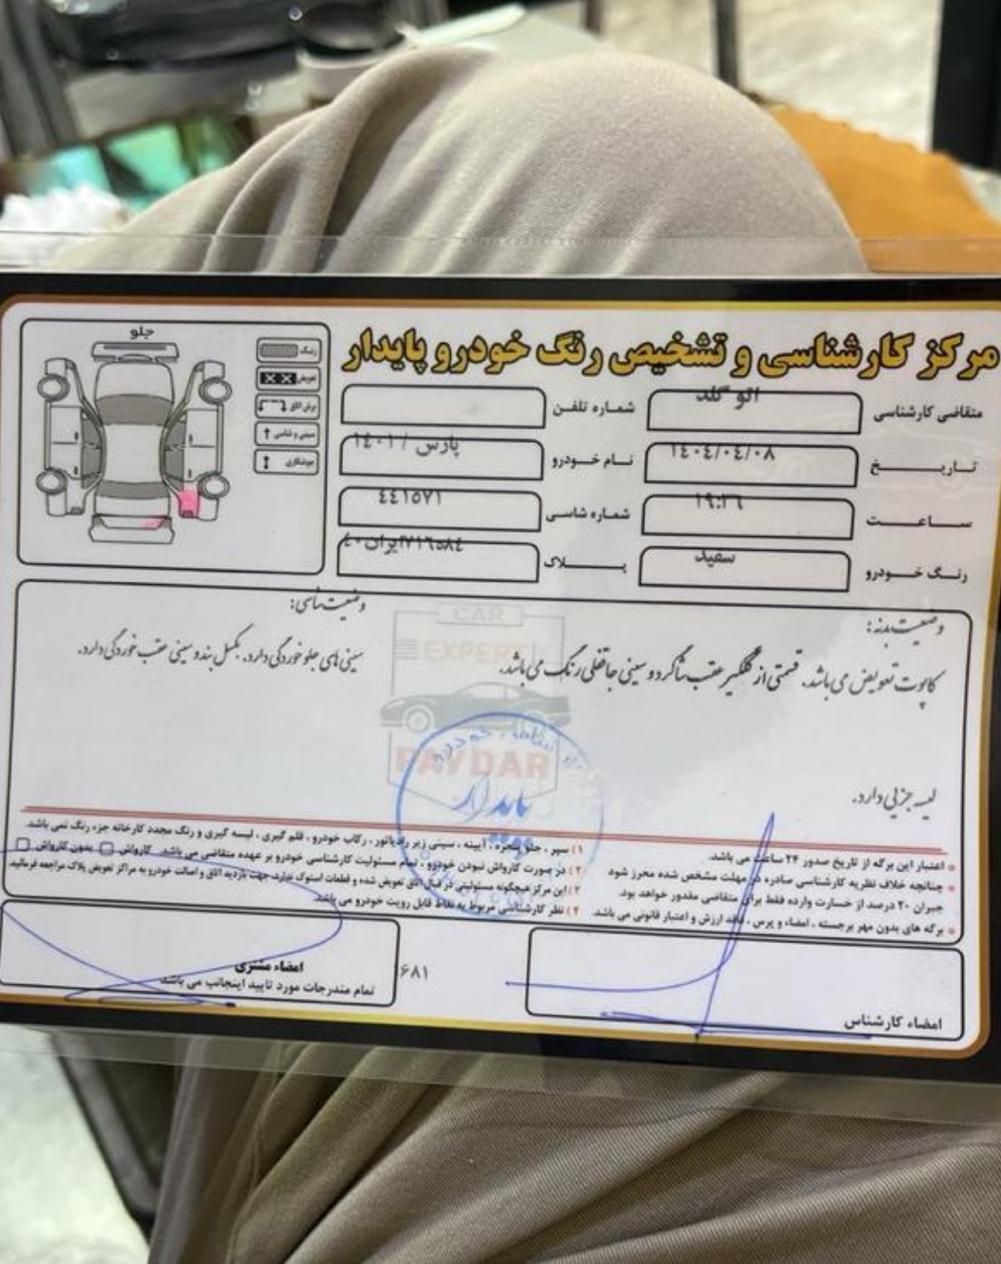 مرکز کارشناسی و تشخیص رنگ خودرو پایدار
جلو
رنگ
تعویض
برش اتاق
سینی و شاسی
جوشکاری
متقاضی کارشناسی
اتو گلد
شماره تلفن
تاریخ
١٤٠٤/٠٤/٠٨
نام خودرو
پارس / ١٤٠١
ساعت
١٩:٢٦
شماره شاسی
٤٤١٥٧١
رنگ خودرو
سفید
پلاک
وضعیت بدنه:
کاپوت تعویض می باشد. قسمتی از گلگیر عقب شاگرد و سینی جاقفلی رنگ می باشد.
لیسه جزیی دارد.
وضعیت شاسی:
سینی های جلو خوردگی دارد. بکسل بند و سینی عقب خوردگی دارد.
CAR
EXPERT
PAYDAR
پایدار
اعتبار این برگه از تاریخ صدور ۲۴ ساعت می باشد.
چنانچه خلاف نظریه کارشناسی صادره در مهلت مشخص شده محرز شود
جبران ۲۰ درصد از خسارت وارده فقط برای متقاضی مقدور خواهد بود.
برگه های بدون مهر برجسته ، امضاء و پرس ، فاقد ارزش و اعتبار قانونی می باشد.
۱) سپر ، جلو پنجره ، آیینه ، سینی زیر رادیاتور ، رکاب خودرو ، قلم گیری ، لیسه گیری و رنگ مجدد کارخانه جزء رنگ نمی باشد.
۲) در صورت کارواش نبودن خودرو ، تمام مسئولیت کارشناسی خودرو بر عهده متقاضی می باشد. کارواش بدون کارواش
۳) این مرکز هیچگونه مسئولیتی در قبال اتاق تعویض شده و قطعات استوک ندارد. جهت بازدید اتاق و اصالت خودرو به مراکز تعویض پلاک مراجعه فرمائید.
۴) نظر کارشناسی مربوط به نقاط قابل رویت خودرو می باشد.
امضاء کارشناس
۶۸۱
امضاء مشتری
تمام مندرجات مورد تایید اینجانب می باشد